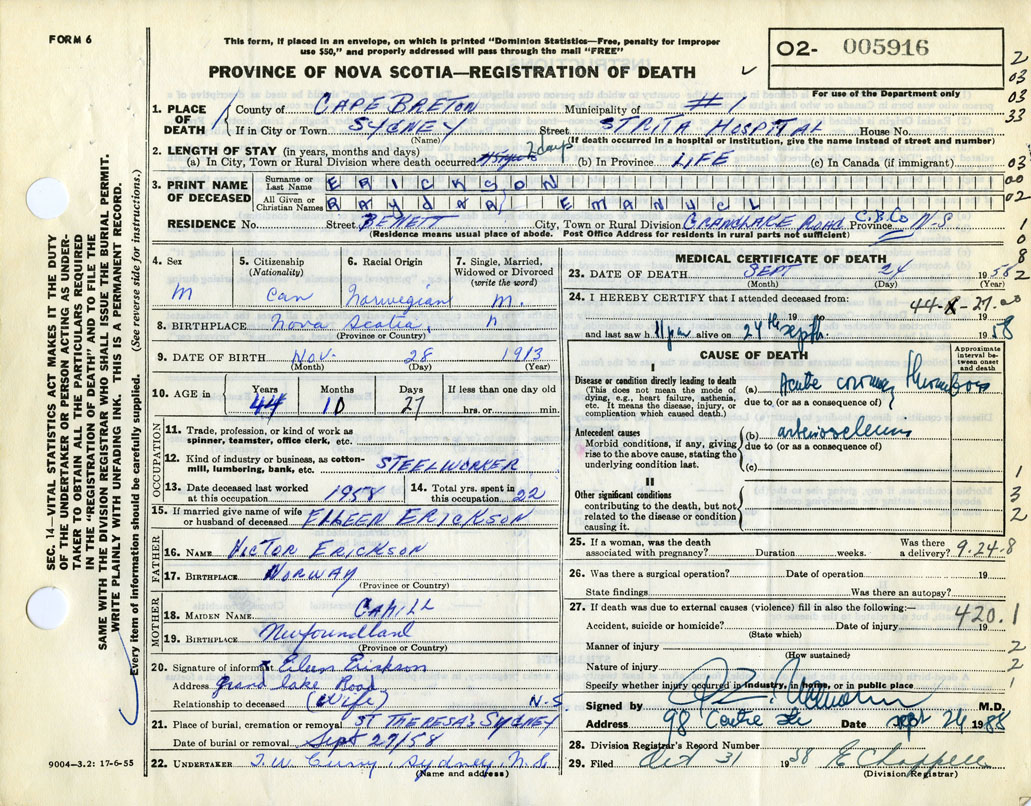 FORM 6
This form, if placed in an envelope, on which is printed "Dominion Statistics—Free, penalty for improper
use $50," and properly addressed will pass through the mail "FREE"
PROVINCE OF NOVA SCOTIA—REGISTRATION OF DEATH
02- 005916
For use of the Department only
1. PLACE OF DEATH
County of CAPE BRETON Municipality of #1
If in City or Town SYDNEY Street ST RITA HOSPITAL House No.
(Name) (If death occurred in a hospital or Institution, give the name instead of street and number)
2. LENGTH OF STAY (in years, months and days)
(a) In City, Town or Rural Division where death occurred 2 days (b) In Province LIFE (c) In Canada (if immigrant)
3. PRINT NAME OF DECEASED
Surname or Last Name ERICKSON
All Given or Christian Names EMANUEL
RESIDENCE No. Street BENETT City, Town or Rural Division C.B.Co Province N-S.
(Residence means usual place of abode. Post Office Address for residents in rural parts not sufficient)
4. Sex M
5. Citizenship (Nationality) Can
6. Racial Origin Norwegian
7. Single, Married, Widowed or Divorced (write the word) M.
8. BIRTHPLACE Nova Scotia,
(Province or Country)
9. DATE OF BIRTH Nov. 28 1913
(Month) (Day) (Year)
10. AGE in Years 44 Months 10 Days 27 If less than one day old hrs. or min.
OCCUPATION
11. Trade, profession, or kind of work as spinner, teamster, office clerk, etc.
12. Kind of industry or business, as cotton-mill, lumbering, bank, etc. STEELWORKER
13. Date deceased last worked at this occupation 1958
14. Total yrs. spent in this occupation 22
15. If married give name of wife or husband of deceased EILEEN ERICKSON
FATHER
16. NAME VICTOR ERICKSON
17. BIRTHPLACE NORWAY
(Province or Country)
MOTHER
18. MAIDEN NAME CAHILL
19. BIRTHPLACE Newfoundland
(Province or Country)
20. Signature of informant Eileen Erickson
Address Grand Lake Road
Relationship to deceased (Wife) N.S.
21. Place of burial, cremation or removal ST THERESA'S SYDNEY
Date of burial or removal Sept 27/58
22. UNDERTAKER T.W. Curry, Sydney, N.S.
(Name and address)
MEDICAL CERTIFICATE OF DEATH
23. DATE OF DEATH SEPT 24 1958
(Month) (Day) (Year)
24. I HEREBY CERTIFY that I attended deceased from:
19 to 19
and last saw h alive on 24th Septh 1958
CAUSE OF DEATH
Approximate interval between onset and death
I
Disease or condition directly leading to death
(This does not mean the mode of dying, e.g., heart failure, asthenia, etc. It means the disease, injury, or complication which caused death.)
(a) Acute coronary thrombosis
due to (or as a consequence of)
Antecedent causes
Morbid conditions, if any, giving rise to the above cause, stating the underlying condition last.
(b) arteriosclerosis
due to (or as a consequence of)
(c)
II
Other significant conditions
contributing to the death, but not related to the disease or condition causing it.
25. If a woman, was the death associated with pregnancy? Duration weeks. Was there a delivery? 9-24-8
26. Was there a surgical operation? Date of operation 19
State findings Was there an autopsy?
27. If death was due to external causes (violence) fill in also the following:—
Accident, suicide or homicide? Date of injury 19
420.1
(State which)
Manner of injury
(How sustained)
Nature of injury
Specify whether injury occurred in industry, in home, or in public place
Signed by M.D.
Address 98 Centre Date Sept 26 1958
28. Division Registrar's Record Number
29. Filed Oct 31 1958 E Chappell
(Division Registrar)
SEC. 14—VITAL STATISTICS ACT MAKES IT THE DUTY
OF THE UNDERTAKER OR PERSON ACTING AS UNDER-
TAKER TO OBTAIN ALL THE PARTICULARS REQUIRED
IN THE "REGISTRATION OF DEATH" AND TO FILE THE
SAME WITH THE DIVISION REGISTRAR WHO SHALL ISSUE THE BURIAL PERMIT.
WRITE PLAINLY WITH UNFADING INK. THIS IS A PERMANENT RECORD.
Every item of information should be carefully supplied. (See reverse side for instructions.)
9004—3.2: 17-6-55